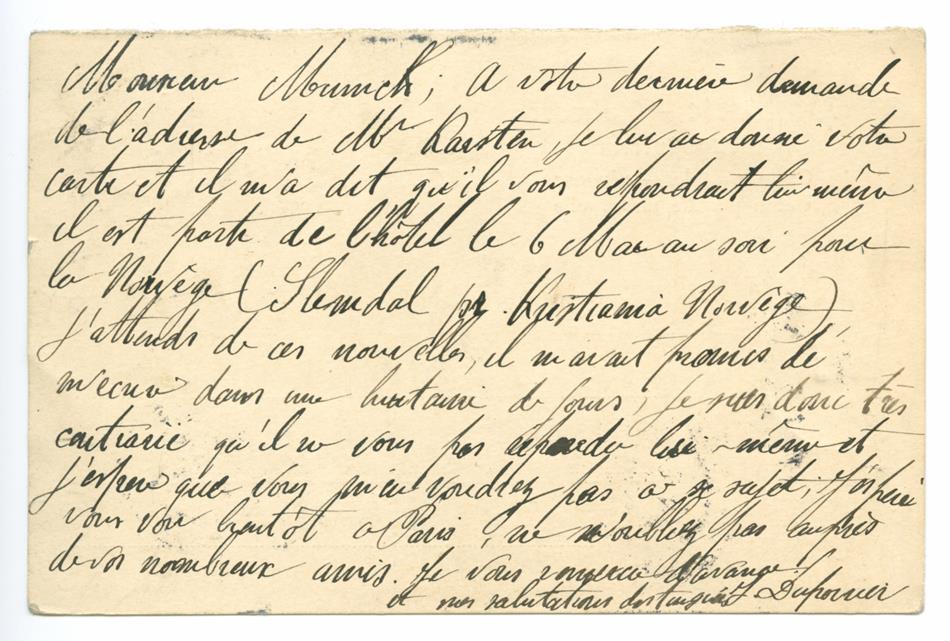 Monsieur Munch, A votre dernière demande
de l'adresse de Mr Karsten, je lui ai donné votre
carte et il m'a dit qu'il vous repondrait lui même
il est parti de l'hôtel le 6 Mai au soir pour
la Norvège (Slemdal pr. Kristiania Norvège)
j'attends de ces nouvelles, il m'avait promis de
m'ecrire dans une huitaine de jours, je suis donc très
contrarié qu'il ne vous pas repondu lui-même et
j'espere que vous m'en voudrez pas a se sujet; J'espère
vous voir bientôt a Paris, ne m'oubliez pas auprès
de vos nombreux amis. Je vous remercie d'avance
et mes salutations distinguées